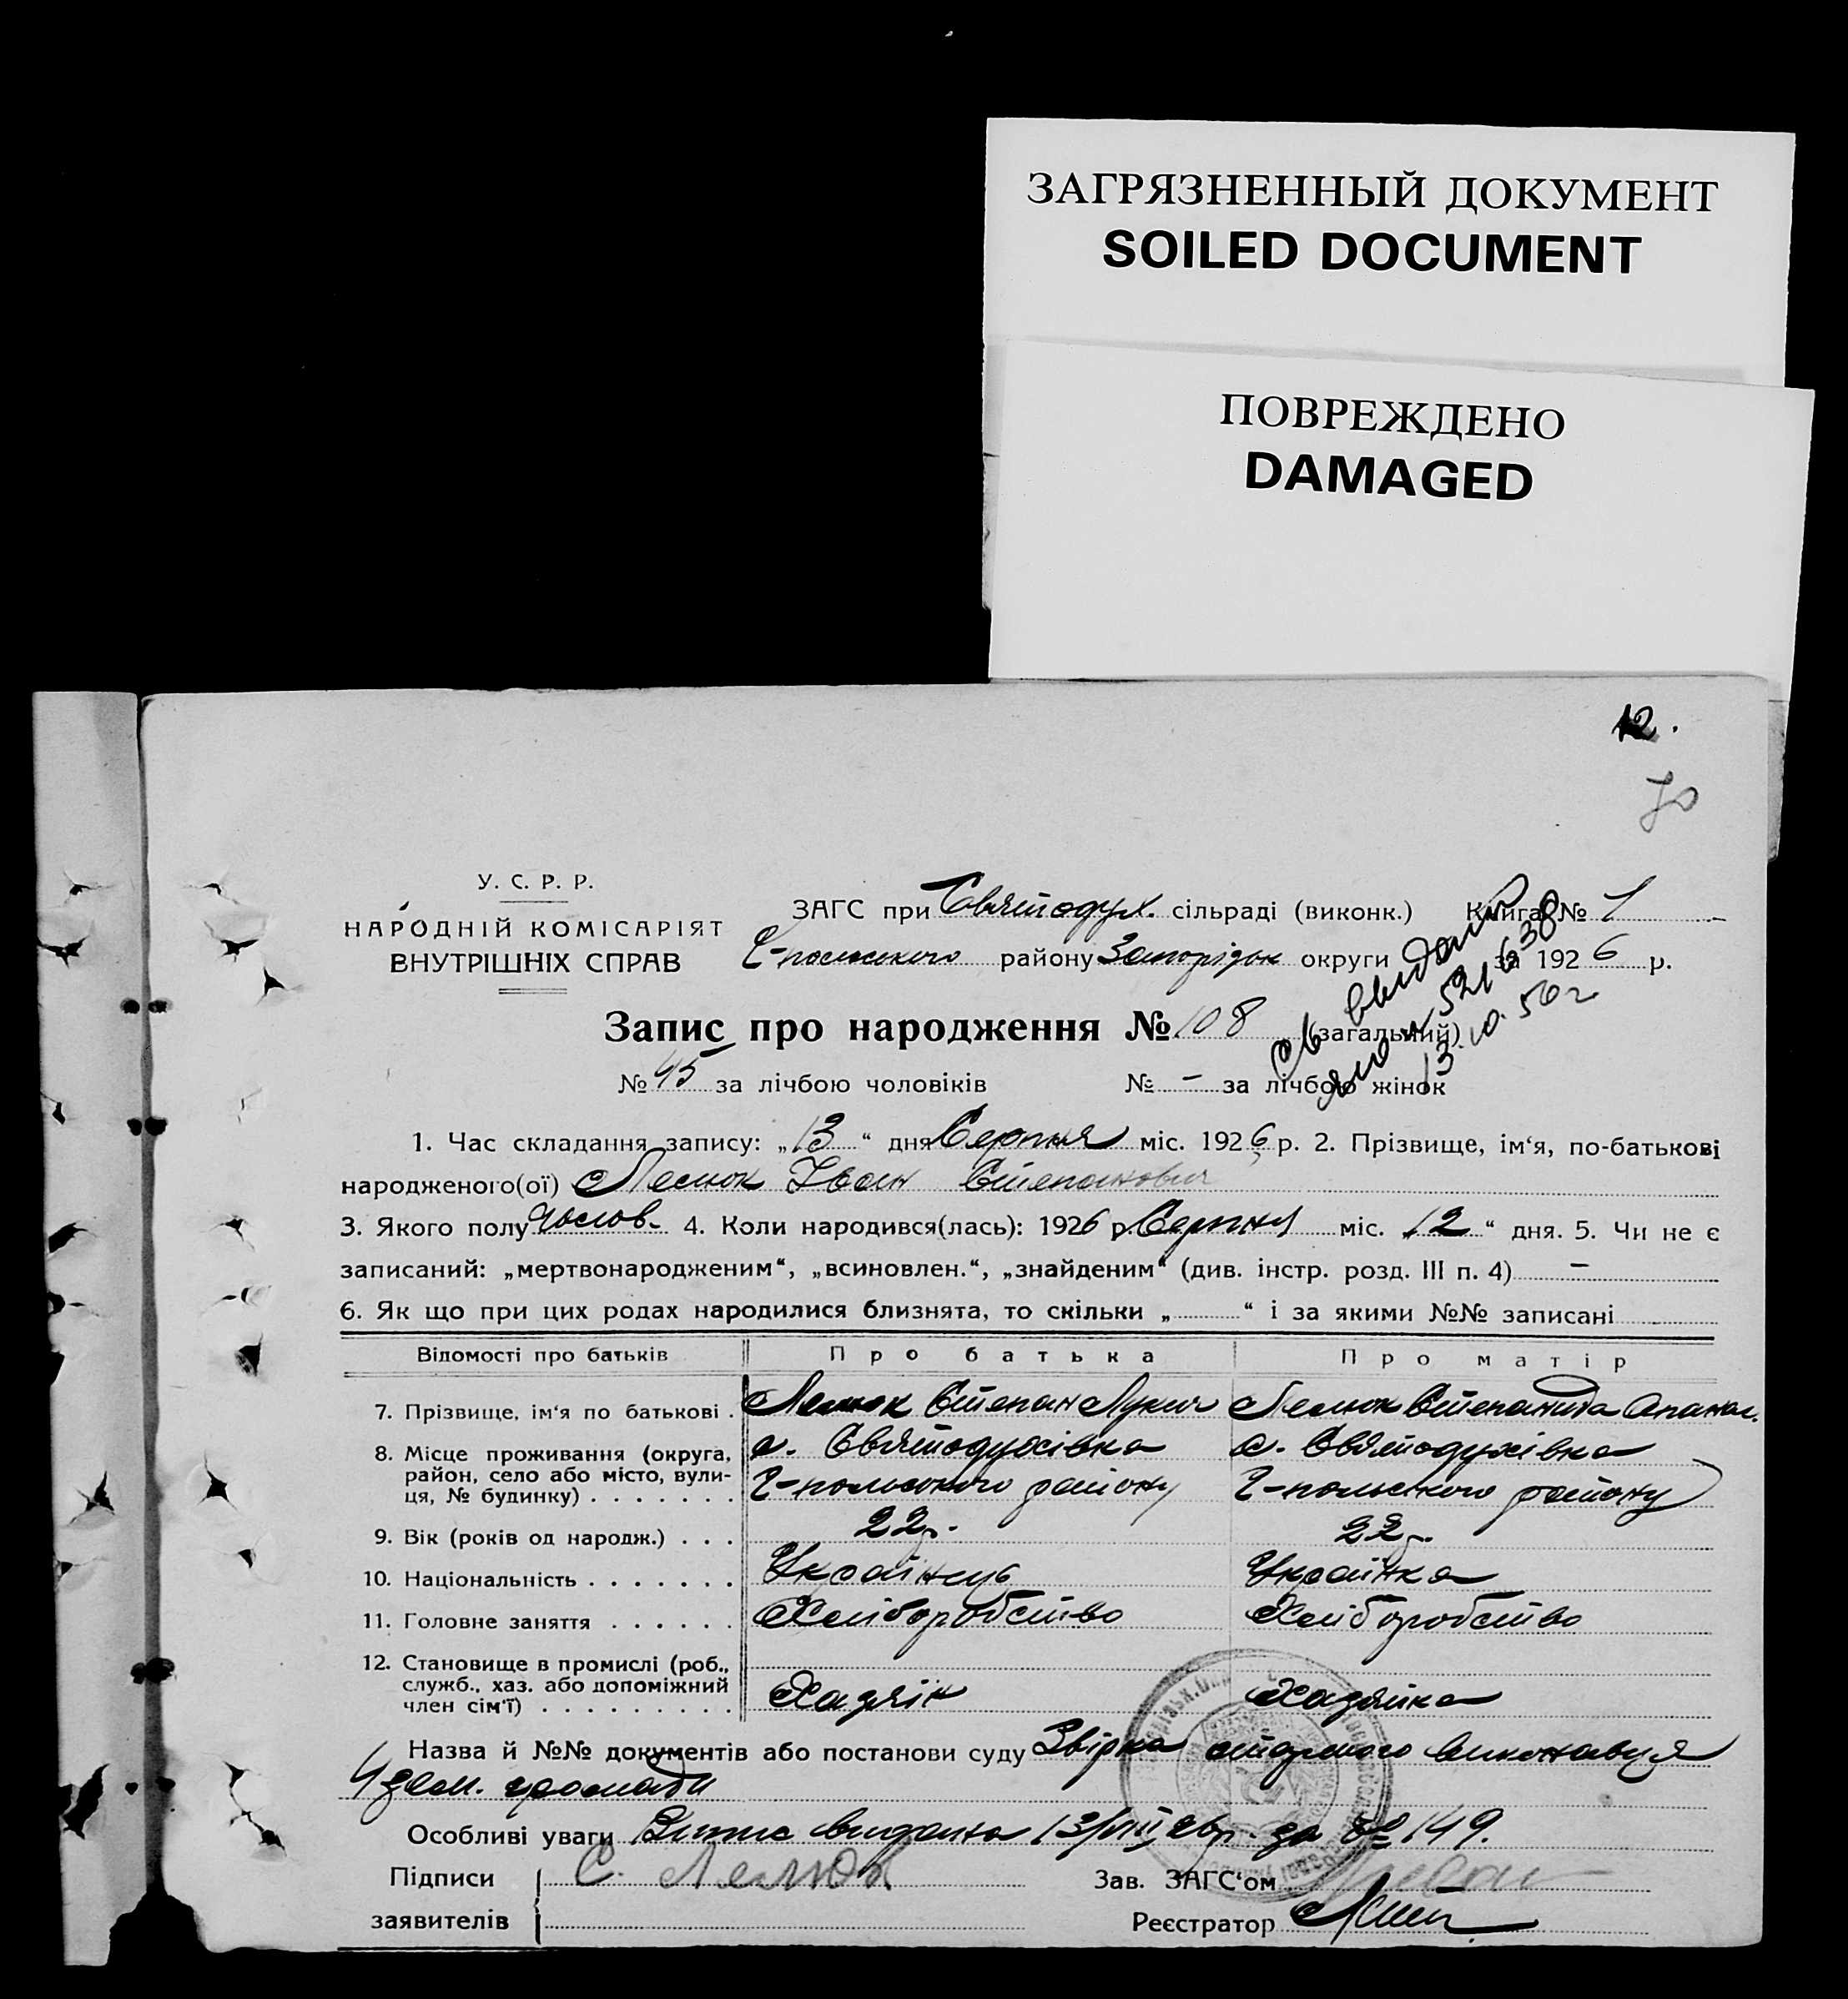 ЗАГРЯЗНЕННЫЙ ДОКУМЕНТ
SOILED DOCUMENT
ПОВРЕЖДЕНО
DAMAGED
12.
70
У. С. Р. Р.
НАРОДНІЙ КОМІСАРІЯТ
ВНУТРІШНІХ СПРАВ
ЗАГС при Святодух. сільраді (виконк.) Книга № 1
Ч-польського району Запорізьк округи за 1926 р.
Св выдано
13.10.56 г
Запис про народження № 108 (загальний)
№ 45 за лічбою чоловіків № - за лічбою жінок
1. Час складання запису: „13“ дня Серпня міс. 1926 р. 2. Прізвище, ім‘я, по-батькові
народженого(ої) Лелюк Іван Степанович
3. Якого полу чолов. 4. Коли народився(лась): 1926 р. Серпня міс. 12“ дня. 5. Чи не є
записаний: „мертвонародженим“, „всиновлен.“, „знайденим“ (див. інстр. розд. III п. 4) -
6. Як що при цих родах народилися близнята, то скільки „ “ і за якими №№ записані
Відомості про батьків Про батька Про матір
7. Прізвище, ім‘я по батькові . Лелюк Степан Лукич Лелюк Степанида Опанас.
8. Місце проживання (округа, с. Святодухівка с. Святодухівка
район, село або місто, вули- Ч-польського району Ч-польського району
ця, № будинку) . . . . . . .
9. Вік (років од народж.) . . . 22 р. 22 р.
10. Національність . . . . . . . Українець Українка
11. Головне заняття . . . . . . Хліборобство Хліборобство
12. Становище в промислі (роб.,
служб., хаз. або допоміжний
член сім‘ї) . . . . . . . . . . Хазяїн Хазяйка
Назва й №№ документів або постанови суду Звірка старшого виконавця
зем. громади
Особливі уваги Витис видано 13/VIII 26 р. за № 149.
Підписи С. Лелюк Зав. ЗАГС‘ом
заявителів Реєстратор